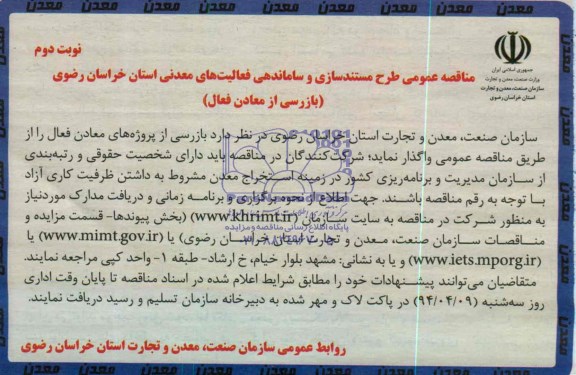 معدن معدن معدن معدن معدن معدن معدن معدن
جمهوری اسلامی ایران
وزارت صنعت، معدن و تجارت
سازمان صنعت، معدن و تجارت
استان خراسان رضوی
نوبت دوم
مناقصه عمومی طرح مستندسازی و ساماندهی فعالیت‌های معدنی استان خراسان رضوی
(بازرسی از معادن فعال)
سازمان صنعت، معدن و تجارت استان خراسان رضوی در نظر دارد بازرسی از پروژه‌های معادن فعال را از
طریق مناقصه عمومی واگذار نماید؛ شرکت‌کنندگان در مناقصه باید دارای شخصیت حقوقی و رتبه‌بندی
از سازمان مدیریت و برنامه‌ریزی کشور در زمینه استخراج معدن مشروط به داشتن ظرفیت کاری آزاد
با توجه به رقم مناقصه باشند. جهت اطلاع از نحوه برگزاری و برنامه زمانی و دریافت مدارک موردنیاز
به منظور شرکت در مناقصه به سایت سازمان (www.khrimt.ir) (بخش پیوندها- قسمت مزایده و
مناقصات سازمان صنعت، معدن و تجارت استان خراسان رضوی) یا (www.mimt.gov.ir) یا
(www.iets.mporg.ir) و یا به نشانی: مشهد بلوار خیام، خ ارشاد- طبقه ۱- واحد کپی مراجعه نمایند.
متقاضیان می‌توانند پیشنهادات خود را مطابق شرایط اعلام شده در اسناد مناقصه تا پایان وقت اداری
روز سه‌شنبه (۹۴/۰۴/۰۹) در پاکت لاک و مهر شده به دبیرخانه سازمان تسلیم و رسید دریافت نمایند.
روابط عمومی سازمان صنعت، معدن و تجارت استان خراسان رضوی
پایگاه اطلاع رسانی مناقصه و مزایده
معدن معدن معدن معدن معدن معدن معدن معدن